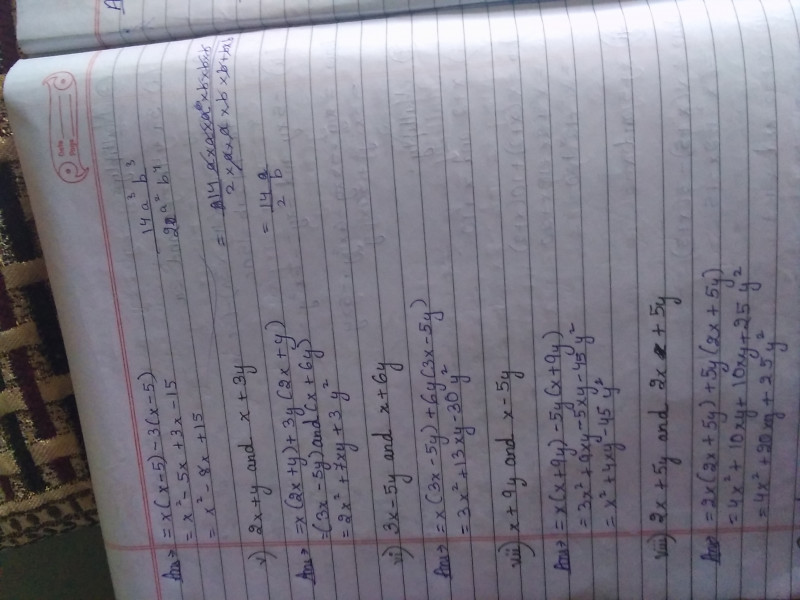 Date
Page
Ans→ = x(x-5) - 3(x-5)
= x² - 5x + 3x - 15
= x² - 8x + 15
14a³ b³
2a² b⁴
= 14 axaxa xbxbxb
2 xaxa xb xbxbxb
= 14a
2 b
v) 2x+y and x+3y
Ans→ = x(2x+y) + 3y(2x+y)
= (3x-5y) and (x+6y)
= 2x² + 7xy + 3y²
vi) 3x-5y and x+6y
Ans→ = x(3x-5y) + 6y(3x-5y)
= 3x² + 13xy - 30y²
vii) x+9y and x-5y
Ans→ = x(x+9y) - 5y(x+9y)
= 3x² + 9xy - 5xy - 45y²
= x² + 4xy - 45y²
viii) 2x+5y and 2x + 5y
Ans→ = 2x(2x+5y) + 5y(2x+5y)
= 4x² + 10xy + 10xy + 25y²
= 4x² + 20xy + 25y²